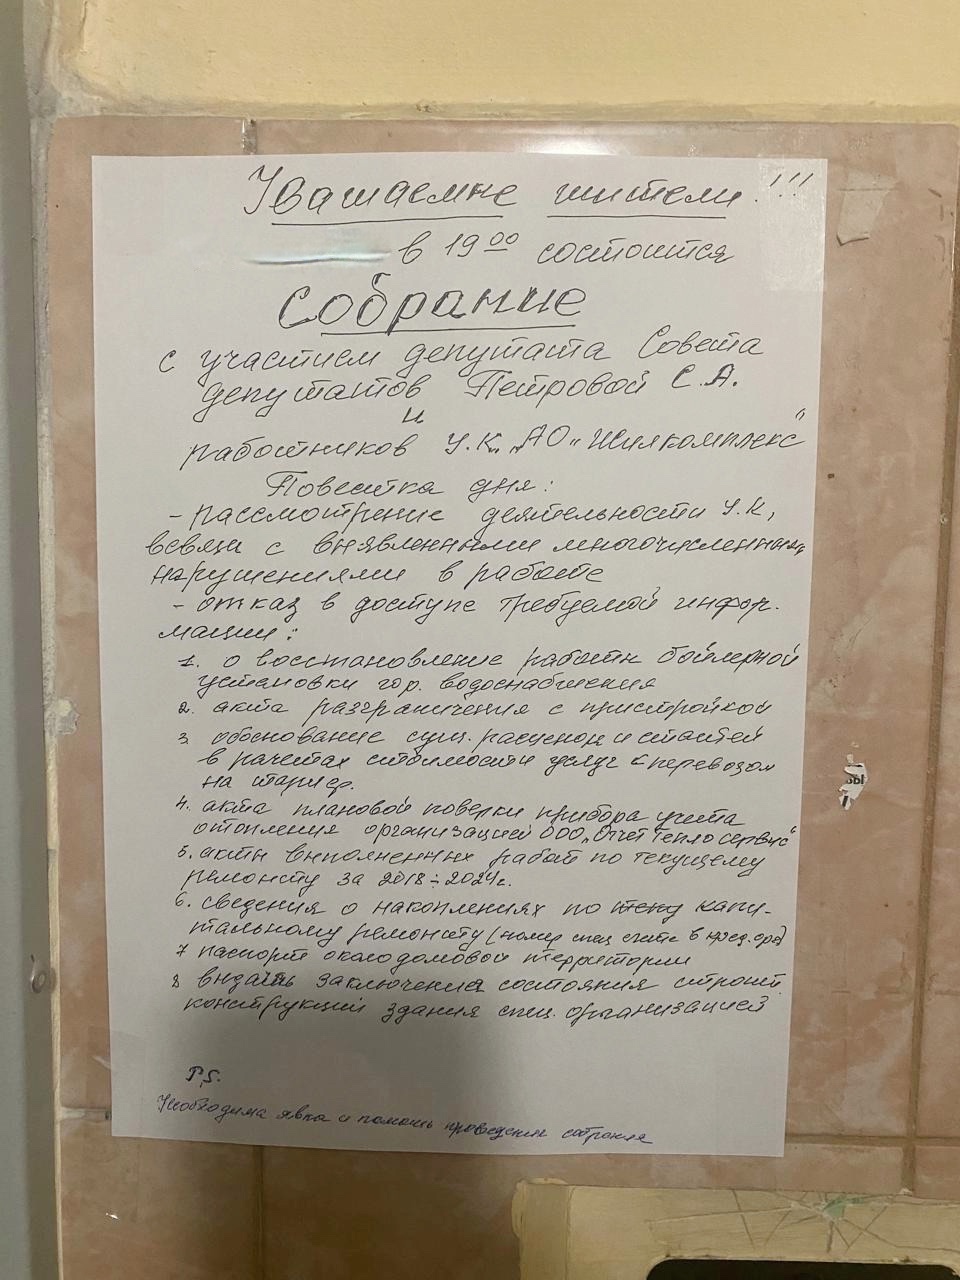 Уважаемые жители!!!
в 19 00 состоится
Собрание
с участием депутата Совета
депутатов Петровой С.А.
и
работников У.К. „АО „Жилкомплекс"
Повестка дня:
- рассмотрение деятельности У.К,
всвязи с выявленными многочисленными
нарушениями в работе
- отказ в доступе требуемой инфор-
мации:
1. о восстановление работы бойлерной
установки гор. водоснабжения
2. акта разграничения с пристройкой
3. обоснование сущ. расценок и статей
в рачетах стоимости услуг с перевозом
на тариф.
4. акта плановой поверки прибора учета
отопления организацией ООО „Отчет Тепло сервис"
5. акты выполненных работ по текущему
ремонту за 2018÷2024г.
6. сведения о накоплениях по капи-
тальному ремонту (номер спец счета в кред. орг)
7 паспорт околодомовой территории
8 выдать заключения состояния строит.
конструкций здания спец. организацией
P.S.
Необходима явка и помощь проведения собрания
ы